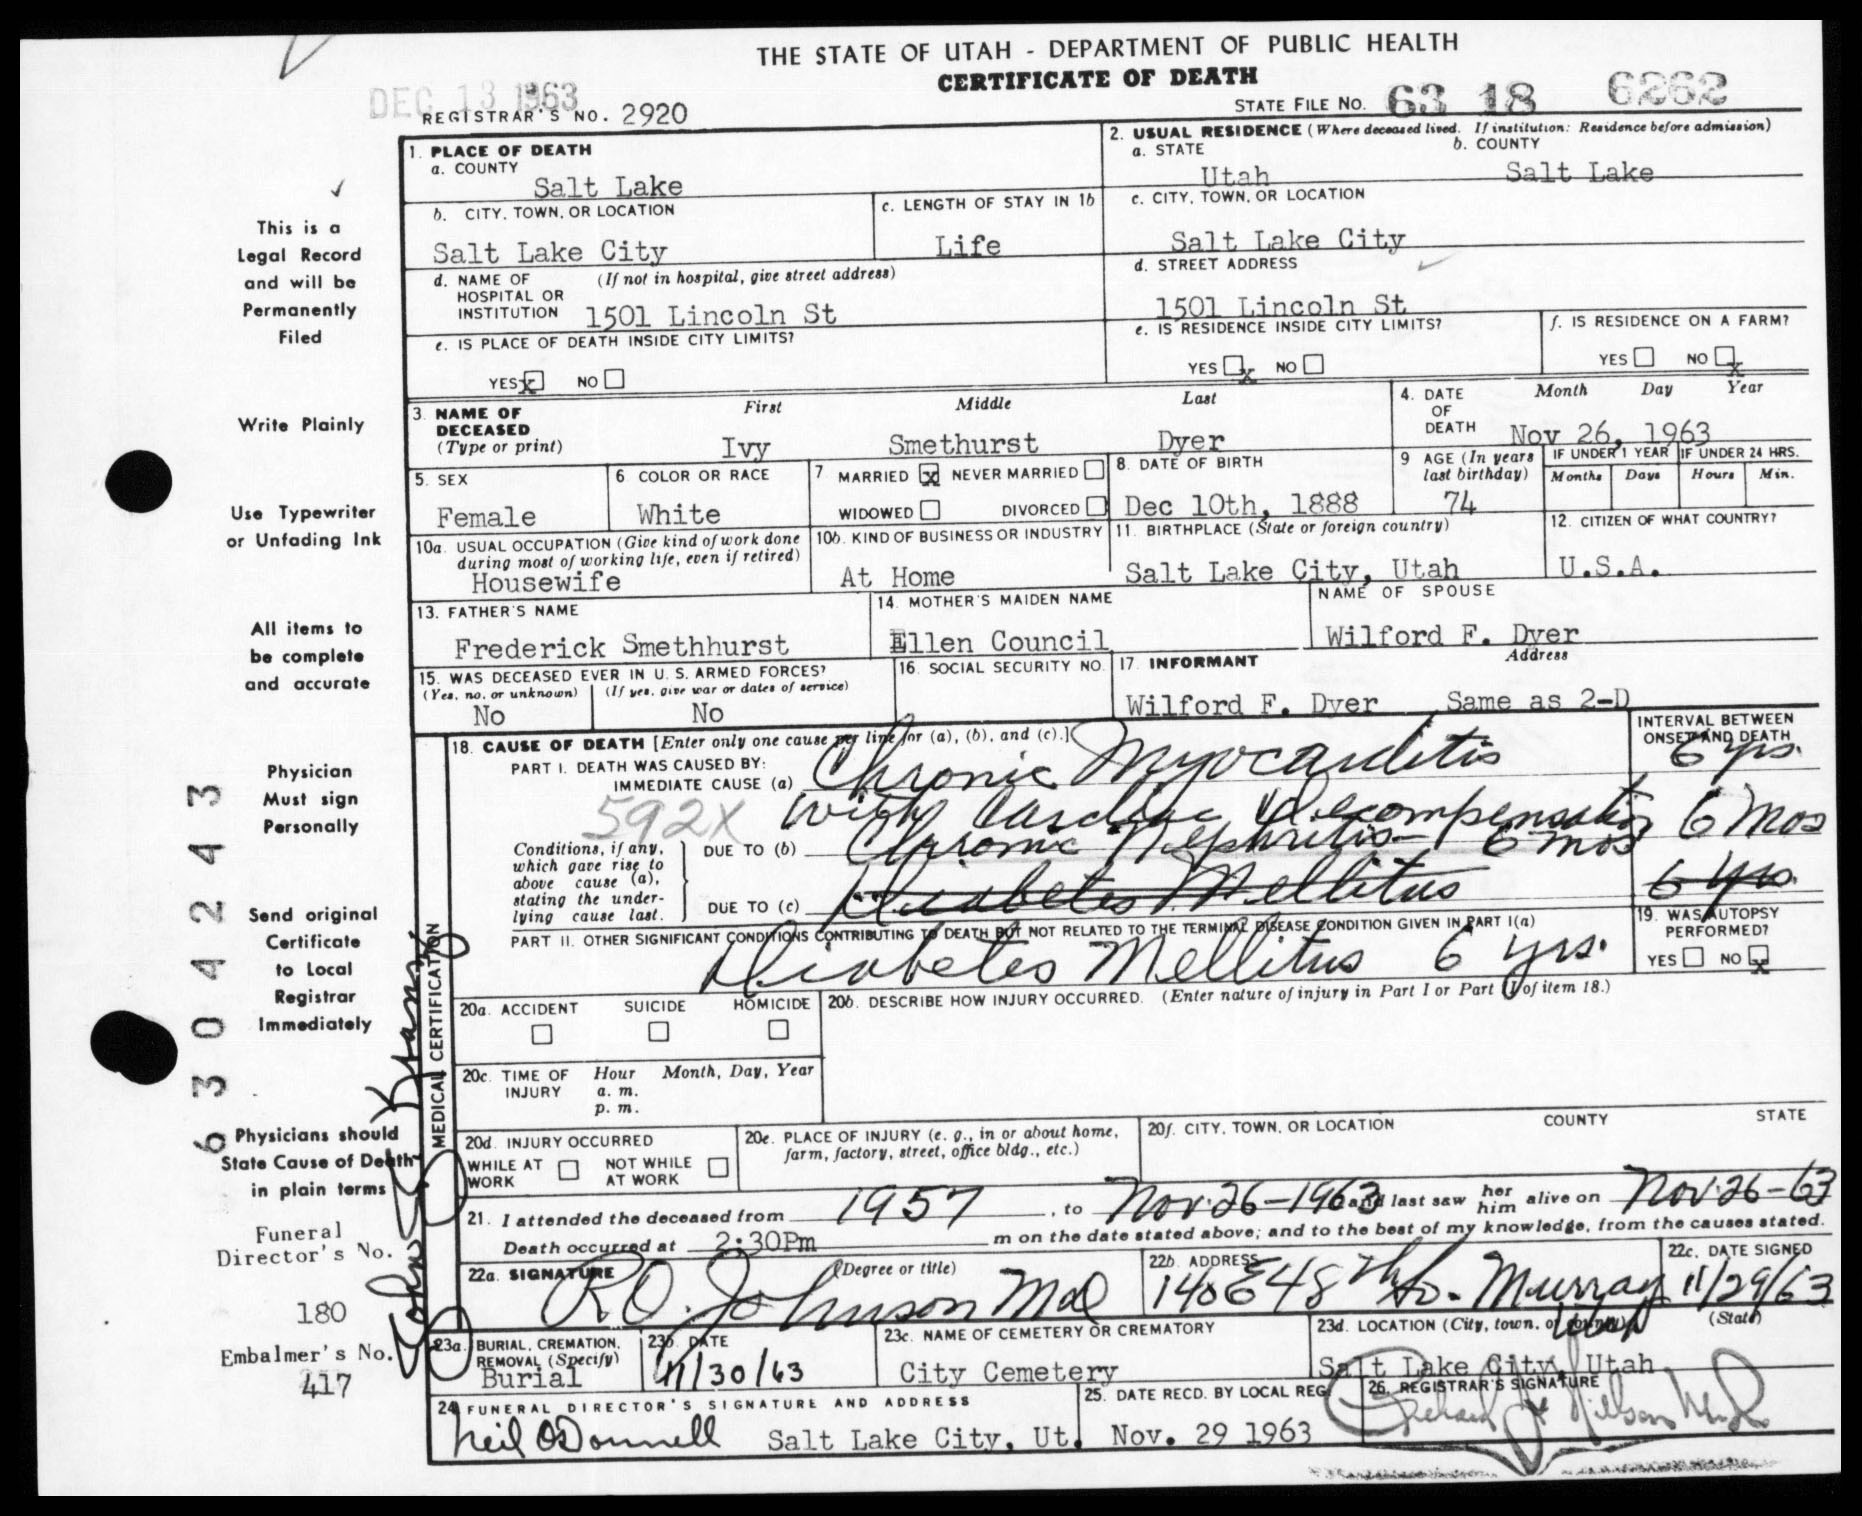 THE STATE OF UTAH - DEPARTMENT OF PUBLIC HEALTH
CERTIFICATE OF DEATH
DEC 13 1963
REGISTRAR'S NO. 2920
STATE FILE NO. 63 18 6262
1. PLACE OF DEATH
a. COUNTY
Salt Lake
2. USUAL RESIDENCE (Where deceased lived. If institution: Residence before admission)
a. STATE b. COUNTY
Utah Salt Lake
b. CITY, TOWN, OR LOCATION
Salt Lake City
c. LENGTH OF STAY IN 1b
Life
c. CITY, TOWN, OR LOCATION
Salt Lake City
d. NAME OF HOSPITAL OR INSTITUTION (If not in hospital, give street address)
1501 Lincoln St
d. STREET ADDRESS
1501 Lincoln St
e. IS PLACE OF DEATH INSIDE CITY LIMITS?
YES x NO
e. IS RESIDENCE INSIDE CITY LIMITS?
YES x NO
f. IS RESIDENCE ON A FARM?
YES NO x
3. NAME OF DECEASED (Type or print)
First Middle Last
Ivy Smethurst Dyer
4. DATE OF DEATH Month Day Year
Nov 26, 1963
5. SEX
Female
6. COLOR OR RACE
White
7. MARRIED x NEVER MARRIED
WIDOWED DIVORCED
8. DATE OF BIRTH
Dec 10th, 1888
9 AGE (In years last birthday)
74
IF UNDER 1 YEAR IF UNDER 24 HRS.
Months Days Hours Min.
10a. USUAL OCCUPATION (Give kind of work done during most of working life, even if retired)
Housewife
10b. KIND OF BUSINESS OR INDUSTRY
At Home
11. BIRTHPLACE (State or foreign country)
Salt Lake City, Utah
12. CITIZEN OF WHAT COUNTRY?
U.S.A.
13. FATHER'S NAME
Frederick Smethhurst
14. MOTHER'S MAIDEN NAME
Ellen Council
NAME OF SPOUSE
Wilford F. Dyer
15. WAS DECEASED EVER IN U. S. ARMED FORCES?
(Yes, no, or unknown) (If yes, give war or dates of service)
No No
16. SOCIAL SECURITY NO.
17. INFORMANT Address
Wilford F. Dyer Same as 2-D
MEDICAL CERTIFICATION
18. CAUSE OF DEATH [Enter only one cause per line for (a), (b), and (c).]
INTERVAL BETWEEN ONSET AND DEATH
PART I. DEATH WAS CAUSED BY:
IMMEDIATE CAUSE (a) Chronic Myocarditis 6 yrs.
592X with Cardiac Decompensation 6 Mos
Conditions, if any, which gave rise to above cause (a), stating the underlying cause last.
DUE TO (b) Chronic Nephritis - 6 mos
DUE TO (c) Diabetes Mellitus 6 yrs.
PART II. OTHER SIGNIFICANT CONDITIONS CONTRIBUTING TO DEATH BUT NOT RELATED TO THE TERMINAL DISEASE CONDITION GIVEN IN PART I(a)
Diabetes Mellitus 6 yrs.
19. WAS AUTOPSY PERFORMED?
YES NO x
20a. ACCIDENT SUICIDE HOMICIDE
20b. DESCRIBE HOW INJURY OCCURRED. (Enter nature of injury in Part I or Part II of item 18.)
20c. TIME OF INJURY Hour Month, Day, Year
a. m.
p. m.
20d. INJURY OCCURRED
WHILE AT WORK NOT WHILE AT WORK
20e. PLACE OF INJURY (e. g., in or about home, farm, factory, street, office bldg., etc.)
20f. CITY, TOWN, OR LOCATION COUNTY STATE
21. I attended the deceased from 1957, to Nov. 26-1963 and last saw her him alive on Nov. 26-63
Death occurred at 2:30Pm m on the date stated above; and to the best of my knowledge, from the causes stated.
22a. SIGNATURE (Degree or title)
R.O. Johnson Md
22b. ADDRESS
140 E 48th So. Murray Utah
22c. DATE SIGNED
11/29/63
23a. BURIAL, CREMATION, REMOVAL (Specify)
Burial
23b. DATE
11/30/63
23c. NAME OF CEMETERY OR CREMATORY
City Cemetery
23d. LOCATION (City, town, or county) (State)
Salt Lake City, Utah
24 FUNERAL DIRECTOR'S SIGNATURE AND ADDRESS
Neil O'Donnell Salt Lake City, Ut.
25. DATE RECD. BY LOCAL REG.
Nov. 29 1963
26. REGISTRAR'S SIGNATURE
This is a
Legal Record
and will be
Permanently
Filed
Write Plainly
Use Typewriter
or Unfading Ink
All items to
be complete
and accurate
Physician
Must sign
Personally
Send original
Certificate
to Local
Registrar
Immediately
Physicians should
State Cause of Death
in plain terms
Funeral
Director's No.
180
Embalmer's No.
417
6304243